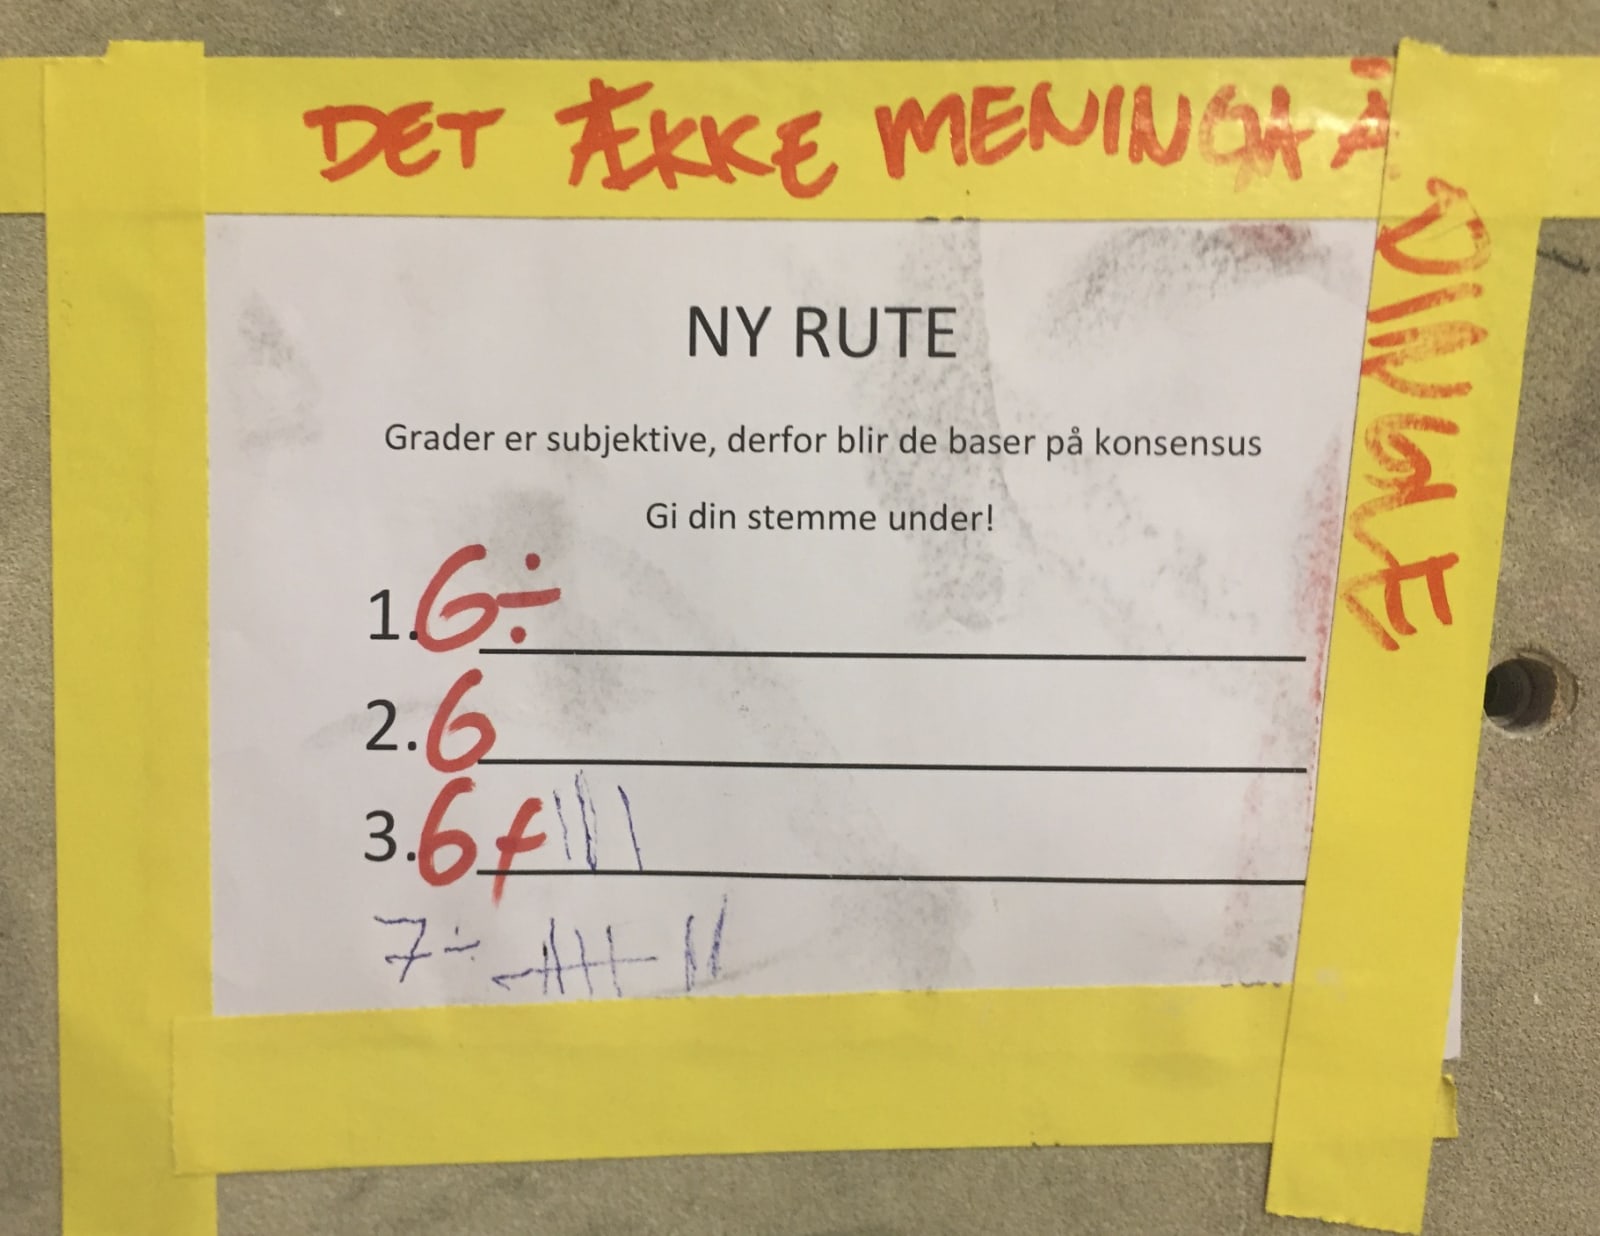 DET ÆKKE MENINGA Å
DINGLE
NY RUTE
Grader er subjektive, derfor blir de baser på konsensus
Gi din stemme under!
1. 6÷
2. 6
3. 6+ ||||
7÷ |||| ||